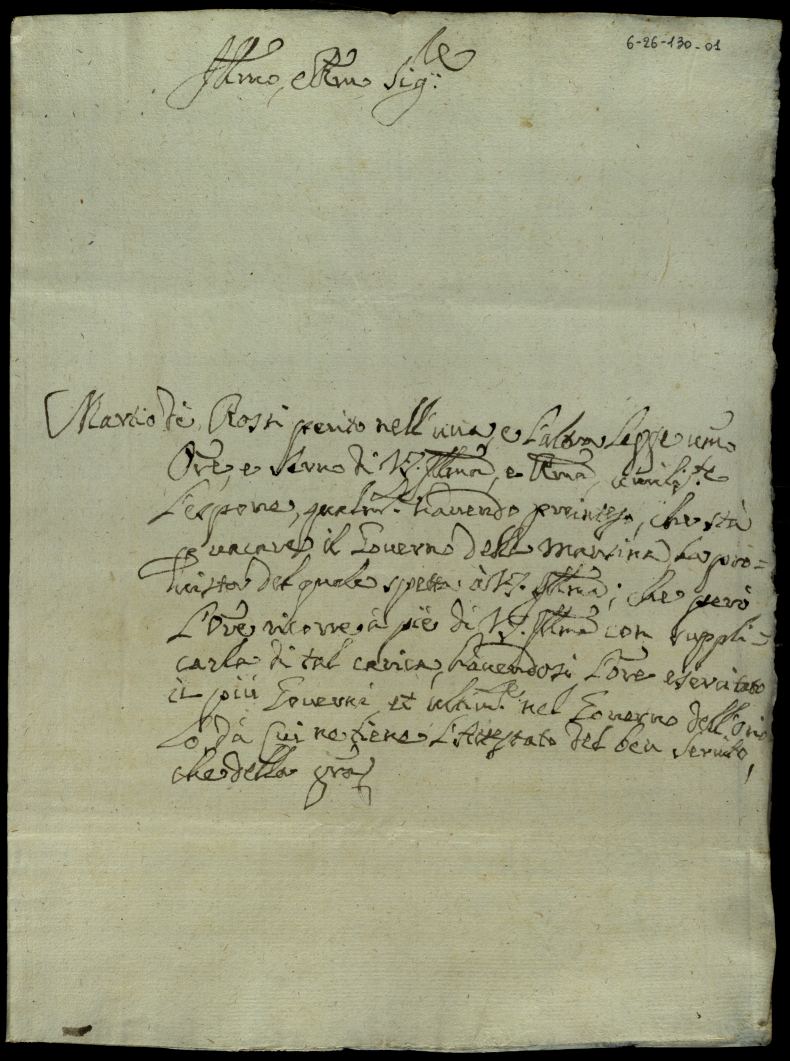 6-26-130-01
Illmo, e Rmo Sig.re
Martio de Rossi perito nell'una, e l'altra legge um.o
Ore, e servo di V.S. Illma, e Rma, umilis.te
l'espone, qualm.te havendo preinteso, che stà
p vacare il Governo della Martina la pro=
vista del quale spetta à V.S. Illma; che però
l'Ore ricorre à piè di V.S. Illma con suppli=
carla di tal carica, havendosi l'Ore esercitato
in più Governi, et ultim.te nel Governo dell'Orio
lo, da cui ne tiene l'Attestato del ben servito,
che della gra